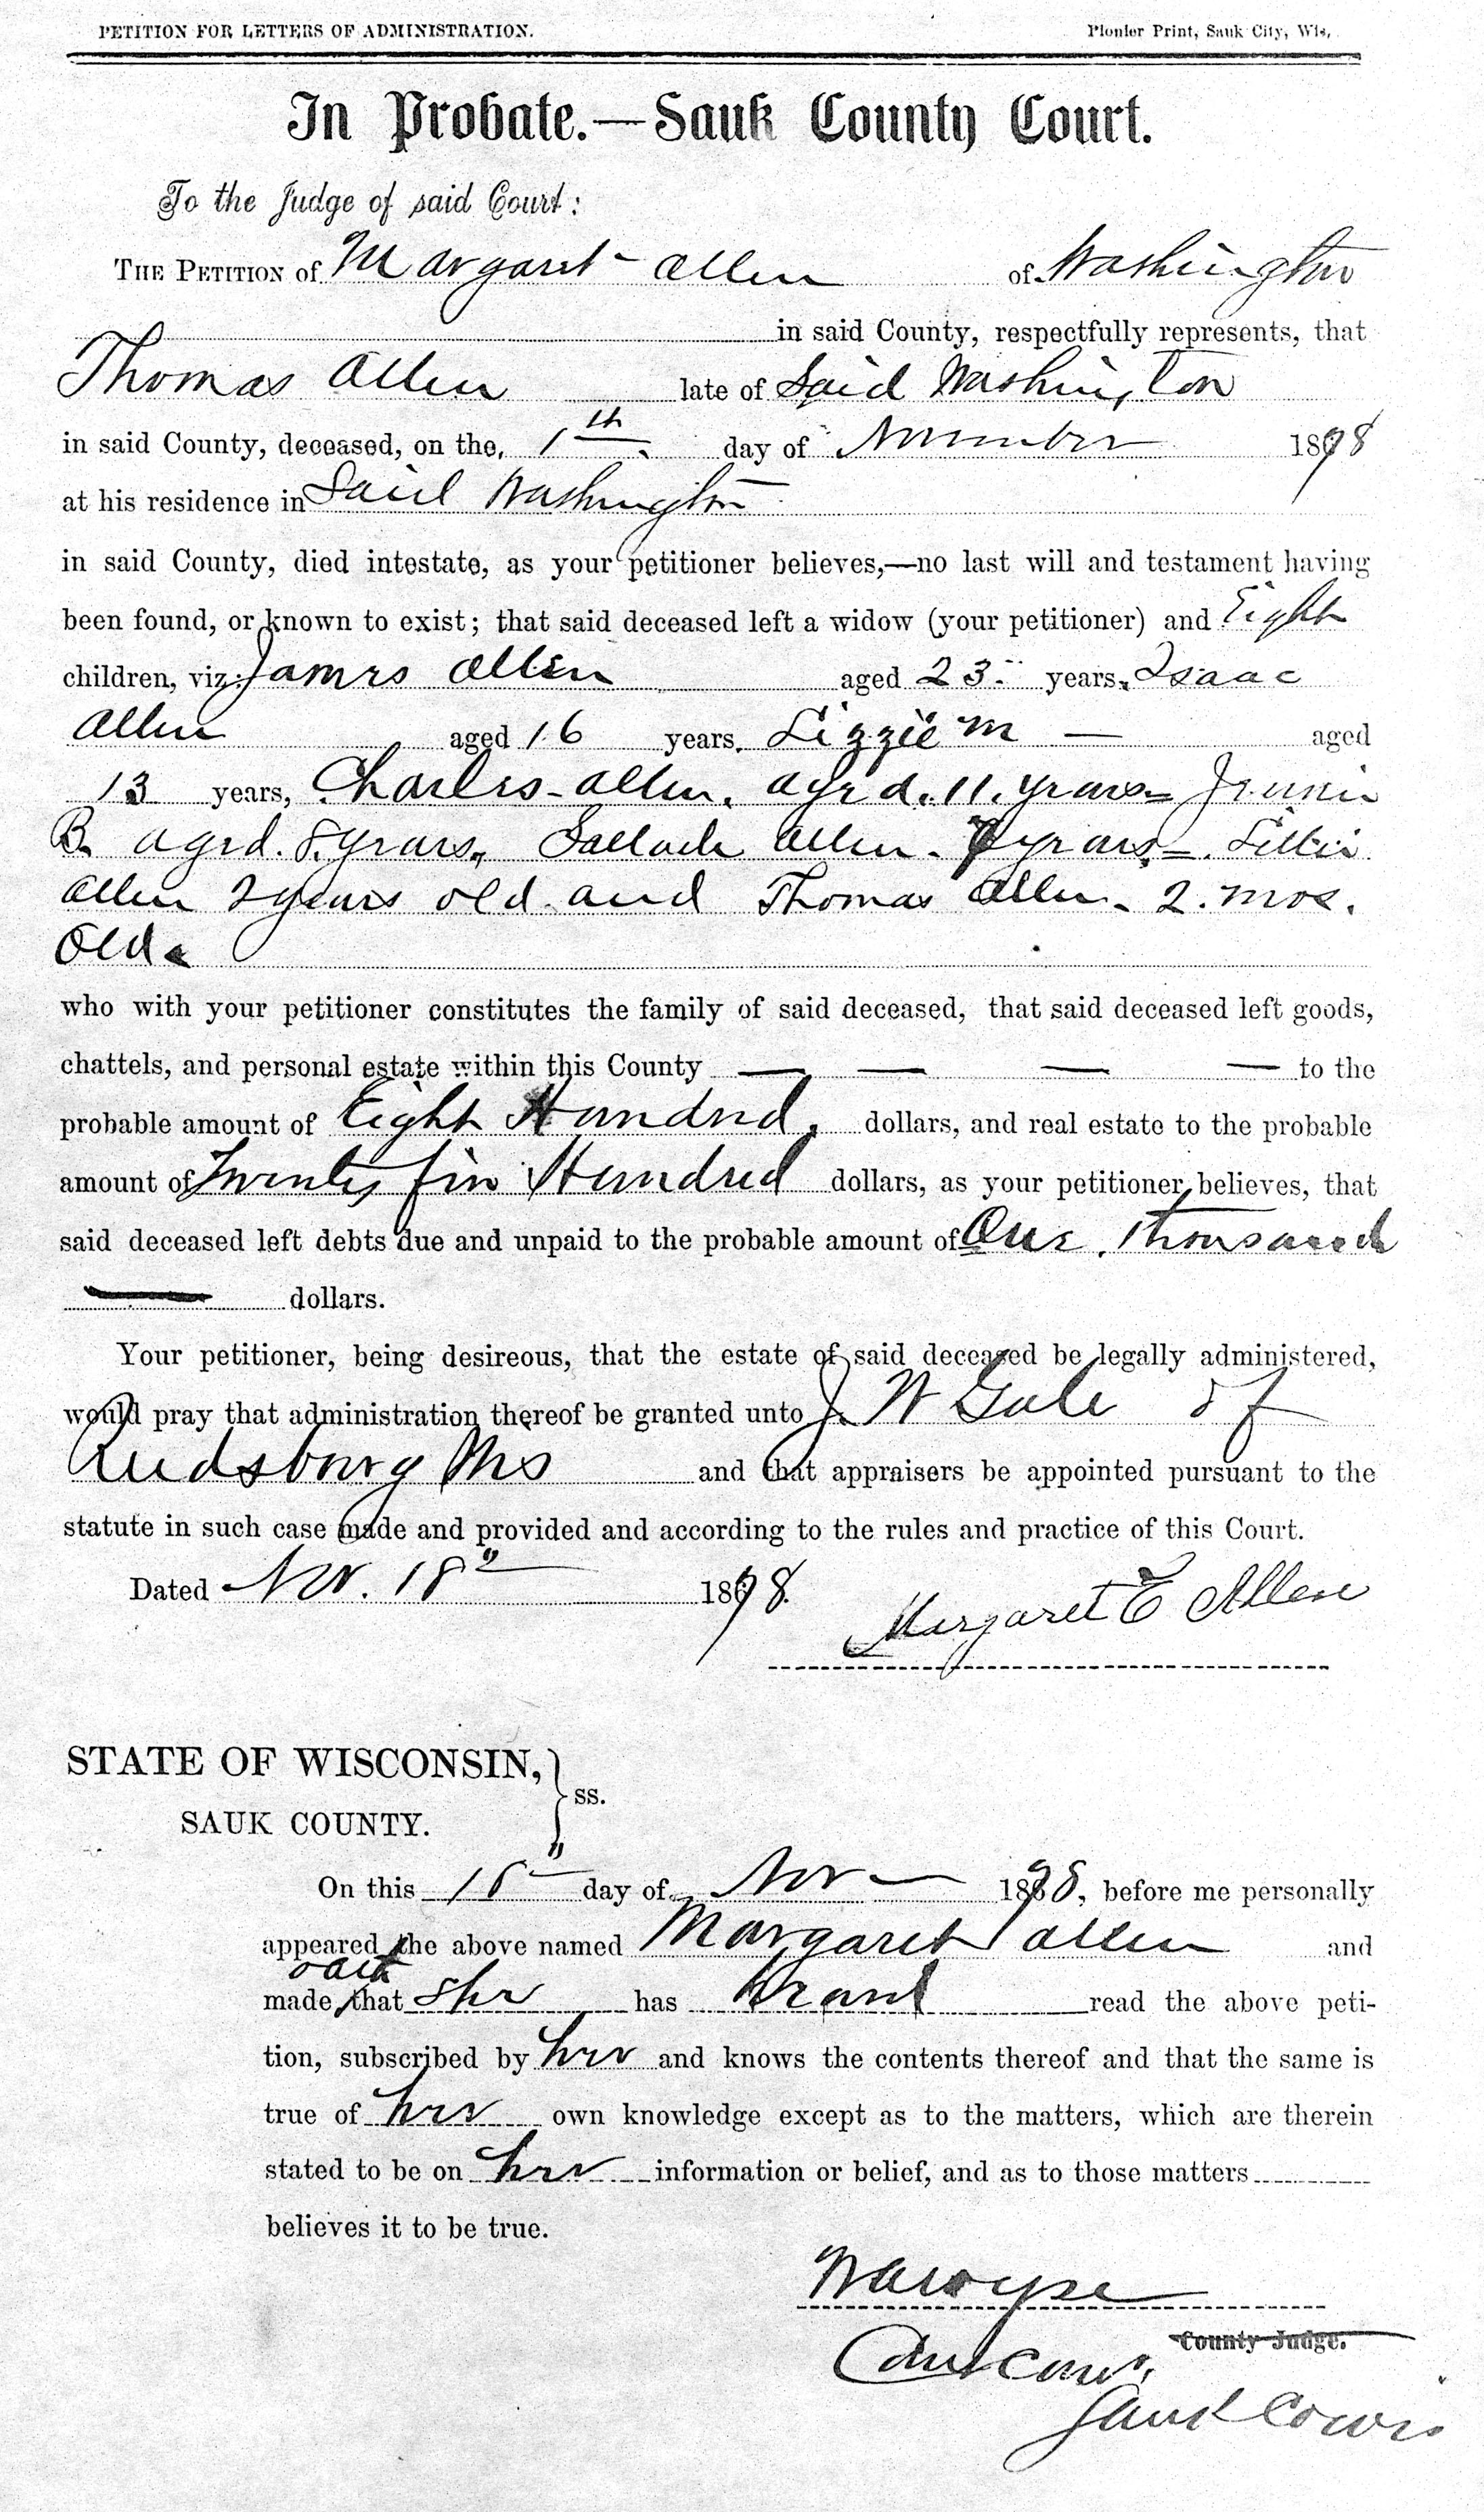 PETITION FOR LETTERS OF ADMINISTRATION. Pionier Print, Sauk City, Wis,
In Probate.—Sauk County Court.
To the Judge of said Court:
THE PETITION of Margaret Allen of Washington
in said County, respectfully represents, that
Thomas Allen late of Said Washington
in said County, deceased, on the, 1th day of November 1898
at his residence in Said Washington
in said County, died intestate, as your petitioner believes,—no last will and testament having
been found, or known to exist; that said deceased left a widow (your petitioner) and Eight
children, viz: James Allen aged 23 years, Isaac
Allen aged 16 years, Lizzie M — aged
13 years, Charles Allen. aged. 11. years = Jennie
B. aged. 8 years, Allen. years = Lillie
Allen 2 years old and Thomas Allen. 2. mos.
old
who with your petitioner constitutes the family of said deceased, that said deceased left goods,
chattels, and personal estate within this County — — — — to the
probable amount of Eight Hundred, dollars, and real estate to the probable
amount of Twenty five Hundred dollars, as your petitioner believes, that
said deceased left debts due and unpaid to the probable amount of One Thousand
— dollars.
Your petitioner, being desireous, that the estate of said deceased be legally administered,
would pray that administration thereof be granted unto J. W Gale of
Reedsburg Wis and that appraisers be appointed pursuant to the
statute in such case made and provided and according to the rules and practice of this Court.
Dated Nov. 18" 1898.
Margaret E Allen
STATE OF WISCONSIN, } ss.
SAUK COUNTY.
On this 18" day of Nov — 1898, before me personally
appeared the above named Margaret Allen and
oath
made, that she has heard read the above peti-
tion, subscribed by her and knows the contents thereof and that the same is
true of her own knowledge except as to the matters, which are therein
stated to be on her information or belief, and as to those matters
believes it to be true.
County Judge.
Court Com.
Sauk Co Wis